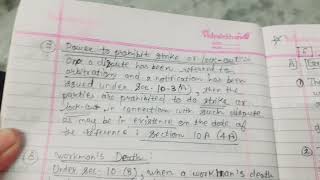 Power to prohibit strike or lock-out :-
Once a dispute has been referred to
arbitrations and a notification has been
issued under Sec. 10-3A, then the
parties are prohibited to do strike or
lock-out in connection with such dispute
as may be in existence on the date of
the reference : section 10A (4A)
Workman's Death :
Under sec- 10 (8), when a workman's death